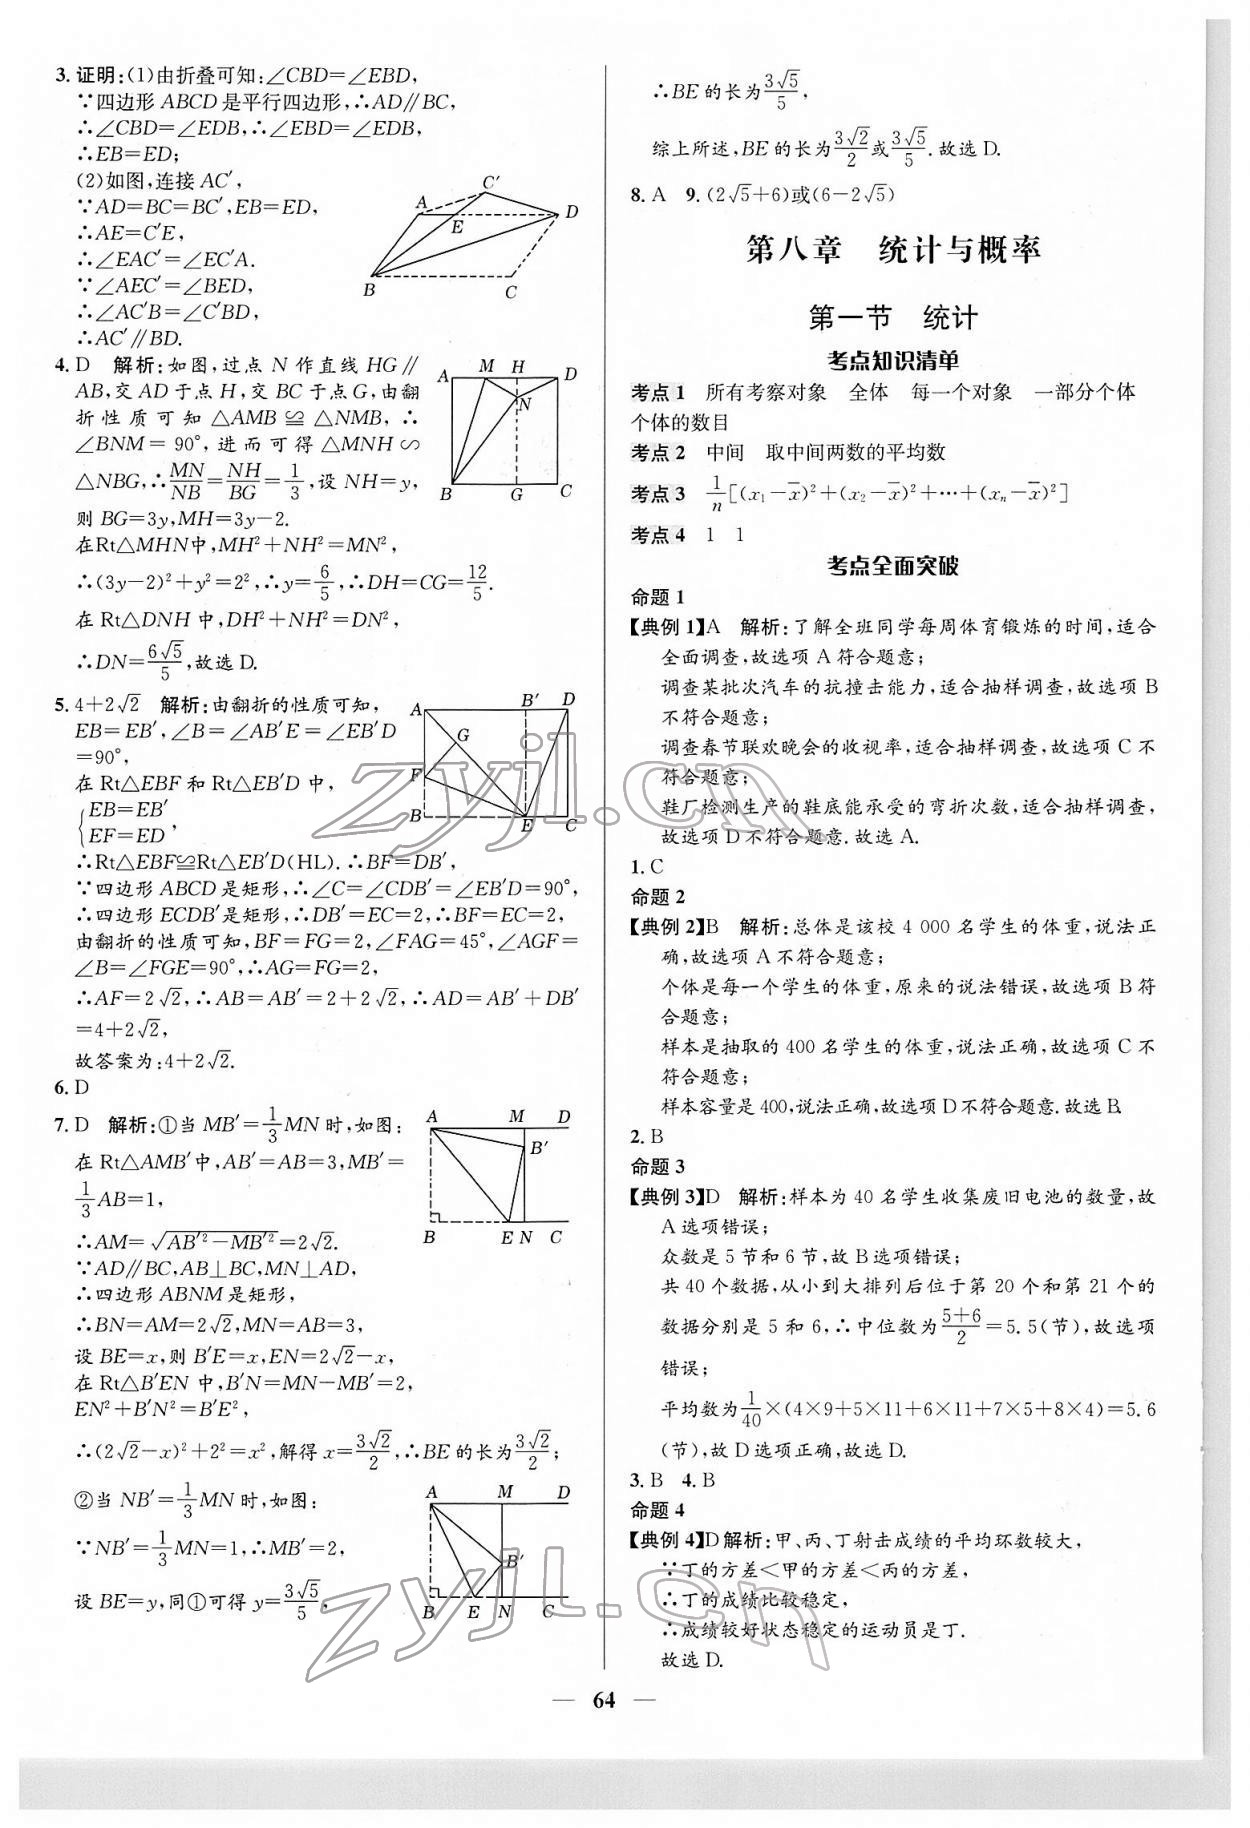 3. 证明:(1)由折叠可知:∠CBD=∠EBD,
∵四边形 ABCD 是平行四边形,∴AD∥BC,
∴∠CBD=∠EDB,∴∠EBD=∠EDB,
∴EB=ED;
(2)如图,连接 AC′,
∵AD=BC=BC′,EB=ED,
∴AE=C′E,
∴∠EAC′=∠EC′A.
∵∠AEC′=∠BED,
∴∠AC′B=∠C′BD,
∴AC′∥BD.
A C′ D E B C
4. D 解析:如图,过点 N 作直线 HG∥
AB,交 AD 于点 H,交 BC 于点 G,由翻
折性质可知 △AMB≌△NMB,∴
∠BNM=90°,进而可得 △MNH∽
△NBG,∴MN/NB=NH/BG=1/3,设 NH=y,
则 BG=3y,MH=3y−2.
在Rt△MHN中,MH²+NH²=MN²,
∴(3y−2)²+y²=2²,∴y=6/5,∴DH=CG=12/5.
在 Rt△DNH 中,DH²+NH²=DN²,
∴DN=6√5/5,故选 D.
A M H D N B G C
5. 4+2√2 解析:由翻折的性质可知,
EB=EB′,∠B=∠AB′E=∠EB′D
=90°,
在 Rt△EBF 和 Rt△EB′D 中,
{EB=EB′
EF=ED,
∴Rt△EBF≌Rt△EB′D(HL).∴BF=DB′,
∵四边形 ABCD 是矩形,∴∠C=∠CDB′=∠EB′D=90°,
∴四边形 ECDB′是矩形,∴DB′=EC=2,∴BF=EC=2,
由翻折的性质可知,BF=FG=2,∠FAG=45°,∠AGF=
∠B=∠FGE=90°,∴AG=FG=2,
∴AF=2√2,∴AB=AB′=2+2√2,∴AD=AB′+DB′
=4+2√2,
故答案为:4+2√2.
A B′ D G F B E C
6. D
7. D 解析:①当 MB′=1/3MN 时,如图:
在 Rt△AMB′中,AB′=AB=3,MB′=
1/3AB=1,
∴AM=√(AB′²−MB′²)=2√2.
∵AD∥BC,AB⊥BC,MN⊥AD,
∴四边形 ABNM 是矩形,
∴BN=AM=2√2,MN=AB=3,
设 BE=x,则 B′E=x,EN=2√2−x,
在 Rt△B′EN 中,B′N=MN−MB′=2,
EN²+B′N²=B′E²,
∴(2√2−x)²+2²=x²,解得 x=3√2/2,∴BE 的长为3√2/2;
A M D B′ B E N C
②当 NB′=1/3MN 时,如图:
∵NB′=1/3MN=1,∴MB′=2,
设 BE=y,同①可得 y=3√5/5,
A M D B′ B E N C
∴BE 的长为3√5/5,
综上所述,BE 的长为3√2/2或3√5/5.故选 D.
8. A 9. (2√5+6)或(6−2√5)
第八章 统计与概率
第一节 统计
考点知识清单
考点 1 所有考察对象 全体 每一个对象 一部分个体
个体的数目
考点 2 中间 取中间两数的平均数
考点 3 1/n[(x₁−x̄)²+(x₂−x̄)²+⋯+(xₙ−x̄)²]
考点 4 1 1
考点全面突破
命题 1
【典例 1】A 解析:了解全班同学每周体育锻炼的时间,适合
全面调查,故选项 A 符合题意;
调查某批次汽车的抗撞击能力,适合抽样调查,故选项 B
不符合题意;
调查春节联欢晚会的收视率,适合抽样调查,故选项 C 不
符合题意;
鞋厂检测生产的鞋底能承受的弯折次数,适合抽样调查,
故选项 D 不符合题意.故选 A.
1. C
命题 2
【典例 2】B 解析:总体是该校 4 000 名学生的体重,说法正
确,故选项 A 不符合题意;
个体是每一个学生的体重,原来的说法错误,故选项 B 符
合题意;
样本是抽取的 400 名学生的体重,说法正确,故选项 C 不
符合题意;
样本容量是 400,说法正确,故选项 D 不符合题意.故选 B
2. B
命题 3
【典例 3】D 解析:样本为 40 名学生收集废旧电池的数量,故
A 选项错误;
众数是 5 节和 6 节,故 B 选项错误;
共 40 个数据,从小到大排列后位于第 20 个和第 21 个的
数据分别是 5 和 6,∴中位数为5+6/2=5.5(节),故选项
错误;
平均数为1/40×(4×9+5×11+6×11+7×5+8×4)=5.6
(节),故 D 选项正确,故选 D.
3. B 4. B
命题 4
【典例 4】D 解析:甲、丙、丁射击成绩的平均环数较大,
∵丁的方差<甲的方差<丙的方差,
∴丁的成绩比较稳定,
∴成绩较好状态稳定的运动员是丁.
故选 D.
— 64 —
zyjl.cn
zyjl.cn